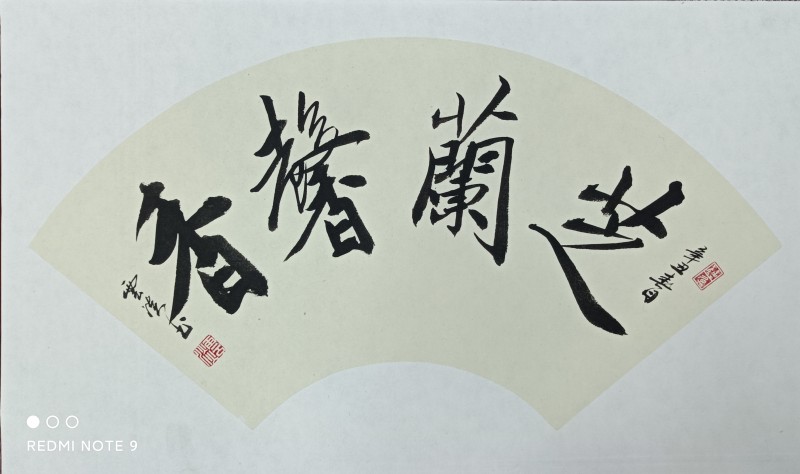 芝蘭馨香
辛丑
雲
REDMI NOTE 9